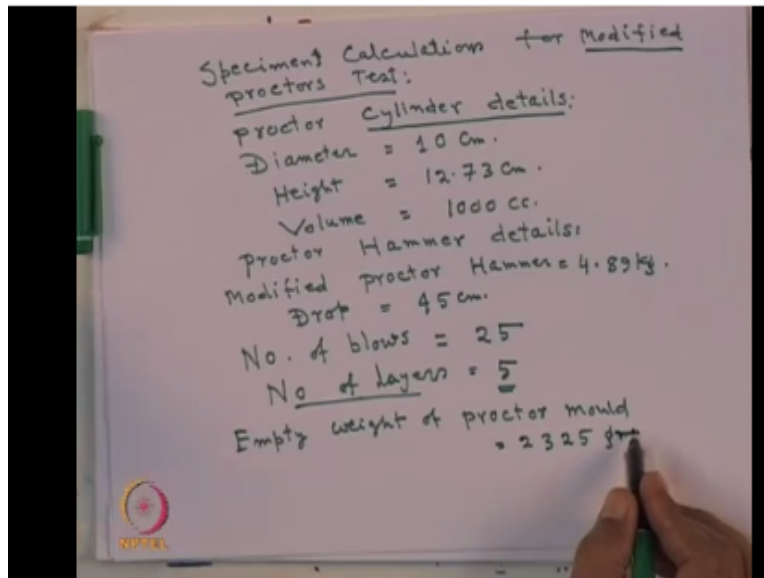 Speciment Calculation for Modified
proctors Test:
proctor Cylinder details:
Diameter = 10 cm.
Height = 12.73 cm.
Volume = 1000 cc.
proctor Hammer details:
Modified proctor Hammer = 4.89 kg.
Drop = 45 cm.
No. of blows = 25
No of Layers = 5
Empty weight of proctor mould
= 2325 gm
NPTEL